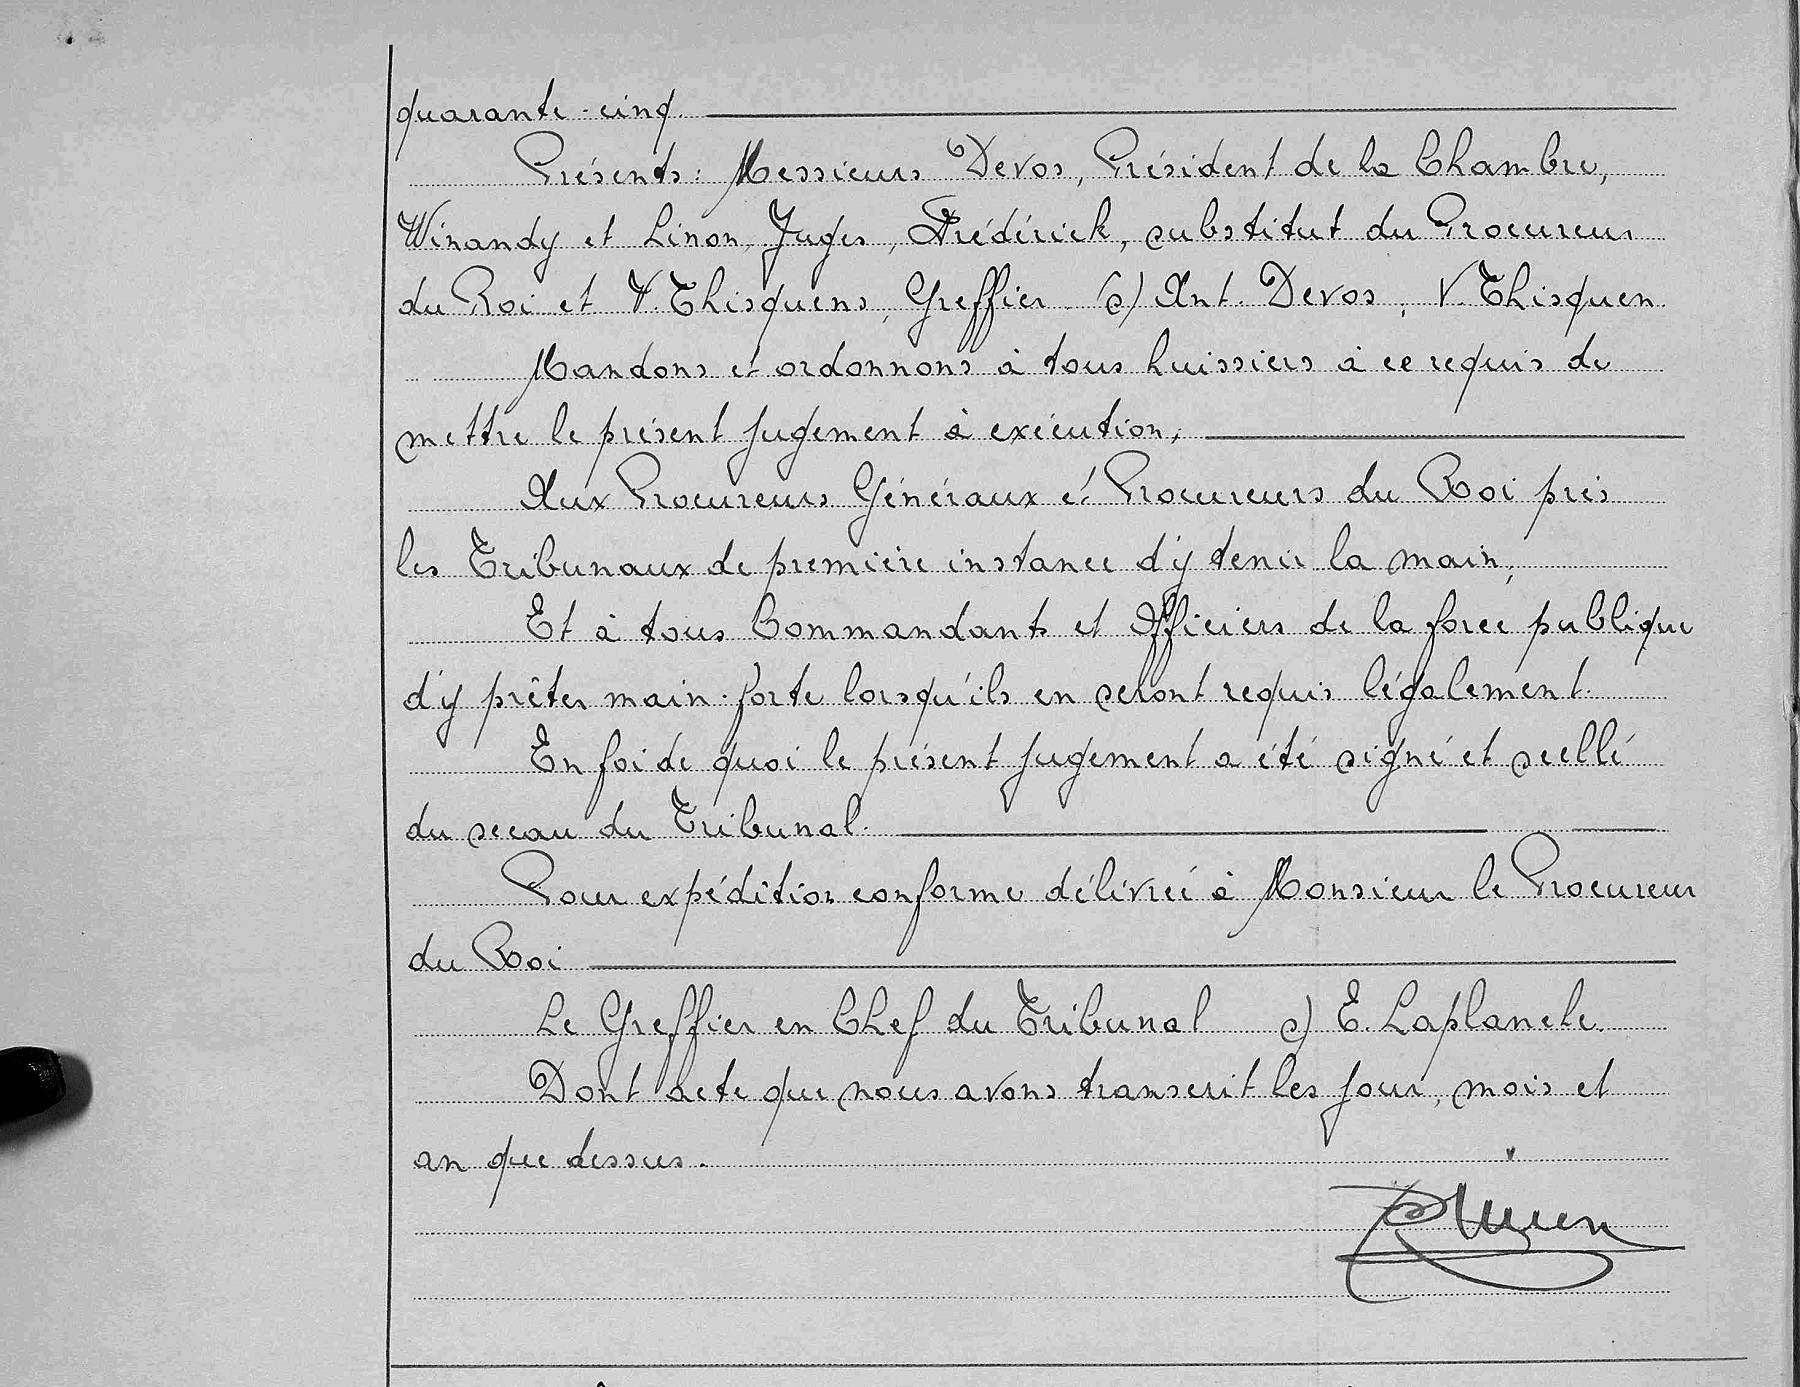 quarante-cinq.
Présents: Messieurs Devos, Président de la Chambre,
Winandy et Linon, Juges, Frédérick, substitut du Procureur
du Roi et V. Thisquens, Greffier. (s) Ant. Devos, V. Thisquen
Mandons et ordonnons à tous huissiers à ce requis de
mettre le présent jugement à exécution;
Aux Procureurs Généraux et Procureurs du Roi près
les Tribunaux de première instance d'y tenir la main;
Et à tous Commandants et Officiers de la force publique
d'y prêter main-forte lorsqu'ils en seront requis légalement.
En foi de quoi le présent jugement a été signé et scellé
du sceau du Tribunal.
Pour expédition conforme délivrée à Monsieur le Procureur
du Roi
Le Greffier en Chef du Tribunal s) E. Laplanche.
Dont acte que nous avons transcrit les jour, mois et
an que dessus.